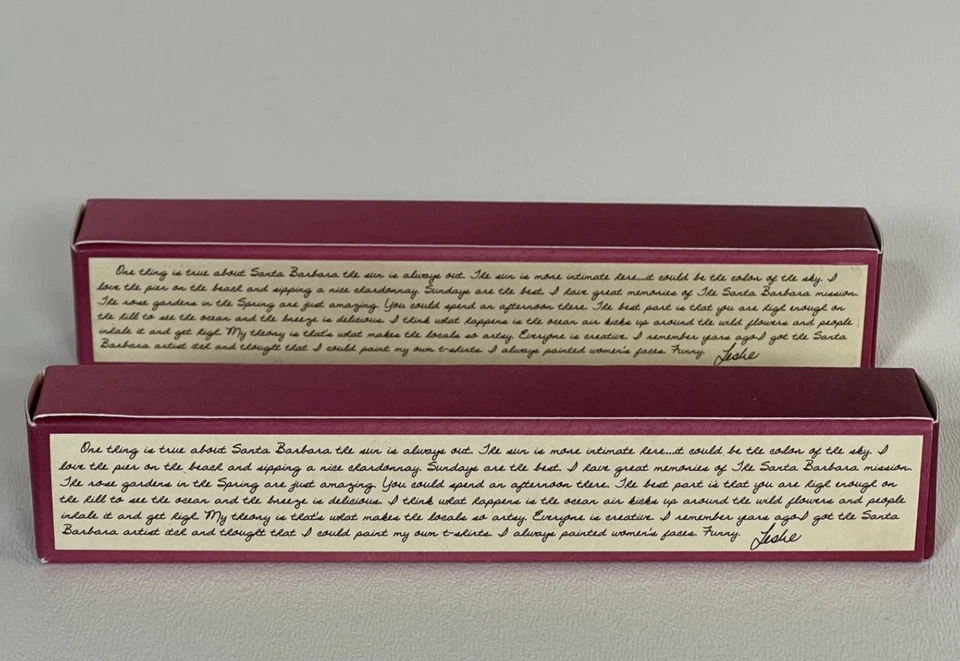 One thing is true about Santa Barbara the sun is always out. The sun is more intimate here...it could be the color of the sky. I
love the pier on the beach and sipping a nice chardonnay. Sundays are the best. I have great memories of The Santa Barbara mission.
The rose gardens in the Spring are just amazing. You could spend an afternoon there. The best part is that you are high enough on
the hill to see the ocean and the breeze is delicious. I think what happens is the ocean air kicks up around the wild flowers and people
inhale it and get high. My theory is that's what makes the locals so artsy. Everyone is creative. I remember years ago I got the Santa
Barbara artist itch and thought that I could paint my own t-shirts. I always painted women's faces. Funny. Leslie
One thing is true about Santa Barbara the sun is always out. The sun is more intimate here...it could be the color of the sky. I
love the pier on the beach and sipping a nice chardonnay. Sundays are the best. I have great memories of The Santa Barbara mission.
The rose gardens in the Spring are just amazing. You could spend an afternoon there. The best part is that you are high enough on
the hill to see the ocean and the breeze is delicious. I think what happens is the ocean air kicks up around the wild flowers and people
inhale it and get high. My theory is that's what makes the locals so artsy. Everyone is creative. I remember years ago I got the Santa
Barbara artist itch and thought that I could paint my own t-shirts. I always painted women's faces. Funny. Leslie